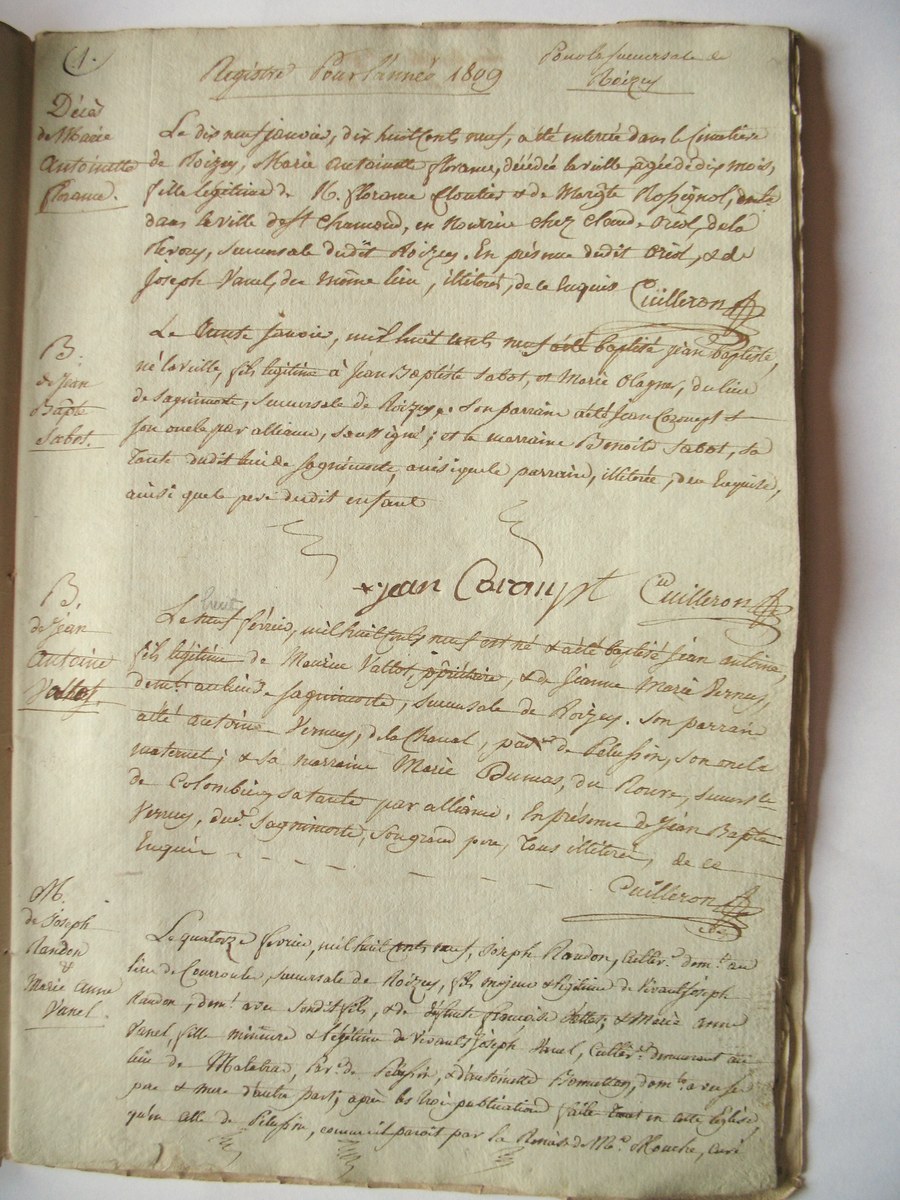 (1.
Registre Pour l'année 1809
Pour la sucursale de
Roizey
Décès
de Marie
Antoinette
florance.
Le dix neuf janvier, dix huit cents neuf, a été enterrée dans le Cimetière
de Roizey, Marie antoinette florance, décédée la veille, agée de dix mois,
fille légitime de R. florance Cloutier & de Margte Rossignol,
dans la ville de St Chamond, en Nourrice chez Claude Oriol, de la
sucursale dudit Roizey. En présence dudit Oriol, & de
Joseph Vanel, du même lieu, illiterés, de ce Enquis Cuilleron
B.
de Jean
Bapte
Sabot.
Le trente janvier, mil huit cents neuf a été baptisé jean baptiste,
né la veille, fils légitime à Jean Baptiste Sabot, et Marie Olagne, du lieu
de Sagnimorte, sucursale de Roizey. Son parrain a été Jean
son oncle par alliance, soussigné; et la marraine Benoite Sabot, sa
Tante dudit lieu de Sagnimorte, illiterée, de ce Enquise,
ainsi que le pere dudit enfant
Jean Cuilleron
B.
de Jean
Antoine
Vallot.
Le Neuf février, mil huit cents neuf est né & a été baptisé jean antoine,
fils légitime de Mourice Vallot, & de Jeanne Marie Vernuy,
demts au lieu de Sagnimorte, sucursale de Roizey. Son parrain
a été antoine Vernuy, de la Chaval, de Pelussin, son oncle
maternel; & sa marraine Marie Dumas, du Roure,
de Colombier sa tante par alliance. En présence de Jean Bapte
Vernuy, Sagnimorte, Son grand pere, Tous illiterés, de ce
Enquis - - - - - -
Cuilleron
M.
de Joseph
Randon
&
Marie Anne
Vanel.
Le quatorze février, mil huit cents neuf, Joseph Randon, Cultr. domt. au
lieu de Courroule, sucursale de Roizey, fils majeur & légitime de vivant Joseph
Randon, domt. avec son dit fils, & de défunte françoise & Marie anne
Vanel, fille mineure & légitime de vivant Joseph Vanel, Cultr. demeurant au
lieu de Pelussin, & d'antoinette avec ses
pere & mere d'autre part; après les trois publications faite tant en cette Eglise,
qu'en celle de Pelussin, comme il paroît par la Remise de Mr. Mouche, curé